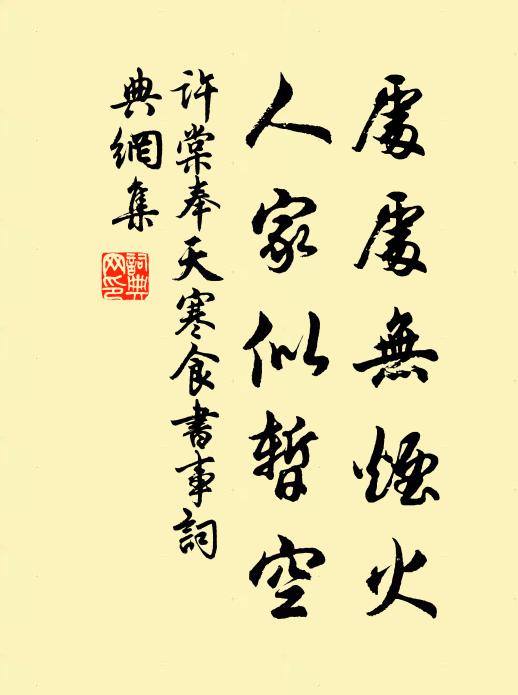 處處無煙火
人家似暫空
許棠奉天寒食書事詞
典網集
詞典
网印